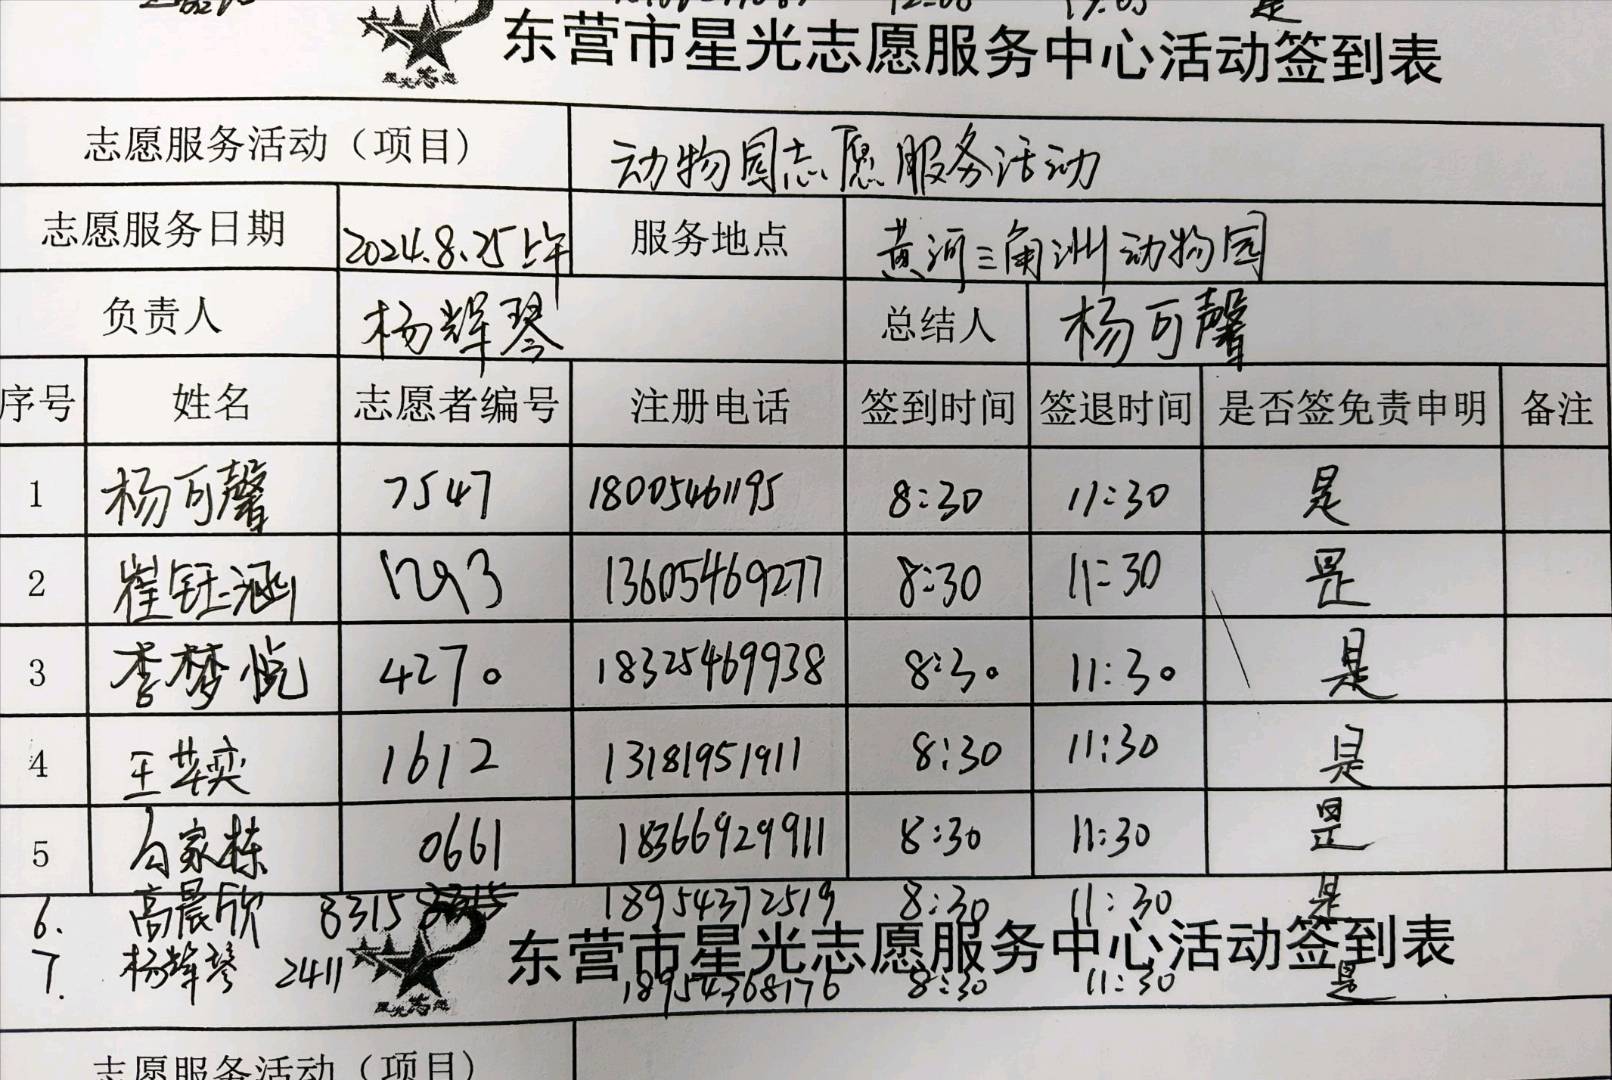 东营市星光志愿服务中心活动签到表
志愿服务活动（项目） 动物园志愿服务活动
志愿服务日期 2024.8.25上午 服务地点 黄河三角洲动物园
负责人 杨辉琴 总结人 杨可馨
序号 姓名 志愿者编号 注册电话 签到时间 签退时间 是否签免责申明 备注
1 杨可馨 7547 18005461195 8:30 11:30 是
2 崔钰涵 1293 13605469277 8:30 11:30 是
3 李梦悦 4270 18325469938 8:30 11:30 是
4 王艺奕 1612 13181951911 8:30 11:30 是
5 家栋 0661 18366929911 8:30 11:30 是
6. 高晨欣 8315 18954372519 8:30 11:30 是
7. 杨辉琴 2411 18954368176 8:30 11:30 是
星光志愿 东营市星光志愿服务中心活动签到表
志愿服务活动（项目）